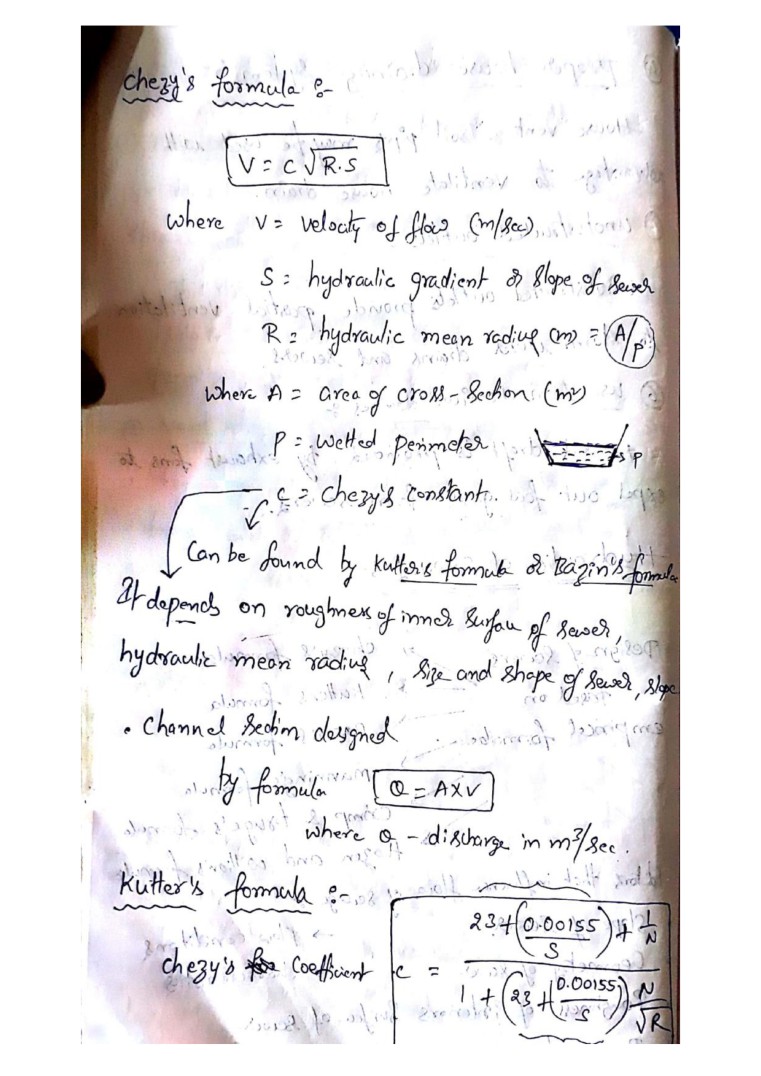 Chezy's formula :-
V = C √R.S
where V = velocity of flow (m/sec)
S = hydraulic gradient or slope of sewer
R = hydraulic mean radius (m) = A/P
where A = area of cross-section (m²)
P = wetted perimeter
P
C = Chezy's constant.
Can be found by Kutter's formula or Bazin's formula
It depends on roughness of inner surface of sewer,
hydraulic mean radius, size and shape of sewer, slope
• Channel section designed
by formula Q = A×V
where Q - discharge in m³/sec.
Kutter's formula :-
Chezy's coefficient C = (23 + (0.00155/S) + 1/N) / (1 + (23 + (0.00155/S)) N/√R)